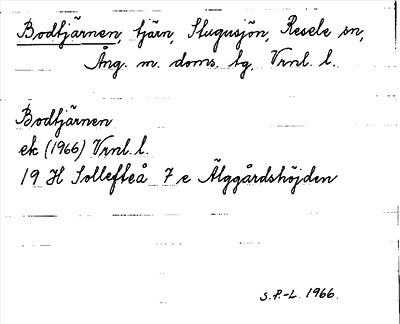 Bodtjärnen, tjärn, Stugusjön, Resele sn,
Ång. m. doms. tg. Vrnl. l.
Bodtjärnen
ek (1966) Vrnl. l.
19 H Sollefteå 7 e Älggårdshöjden
S.P.-L. 1966.